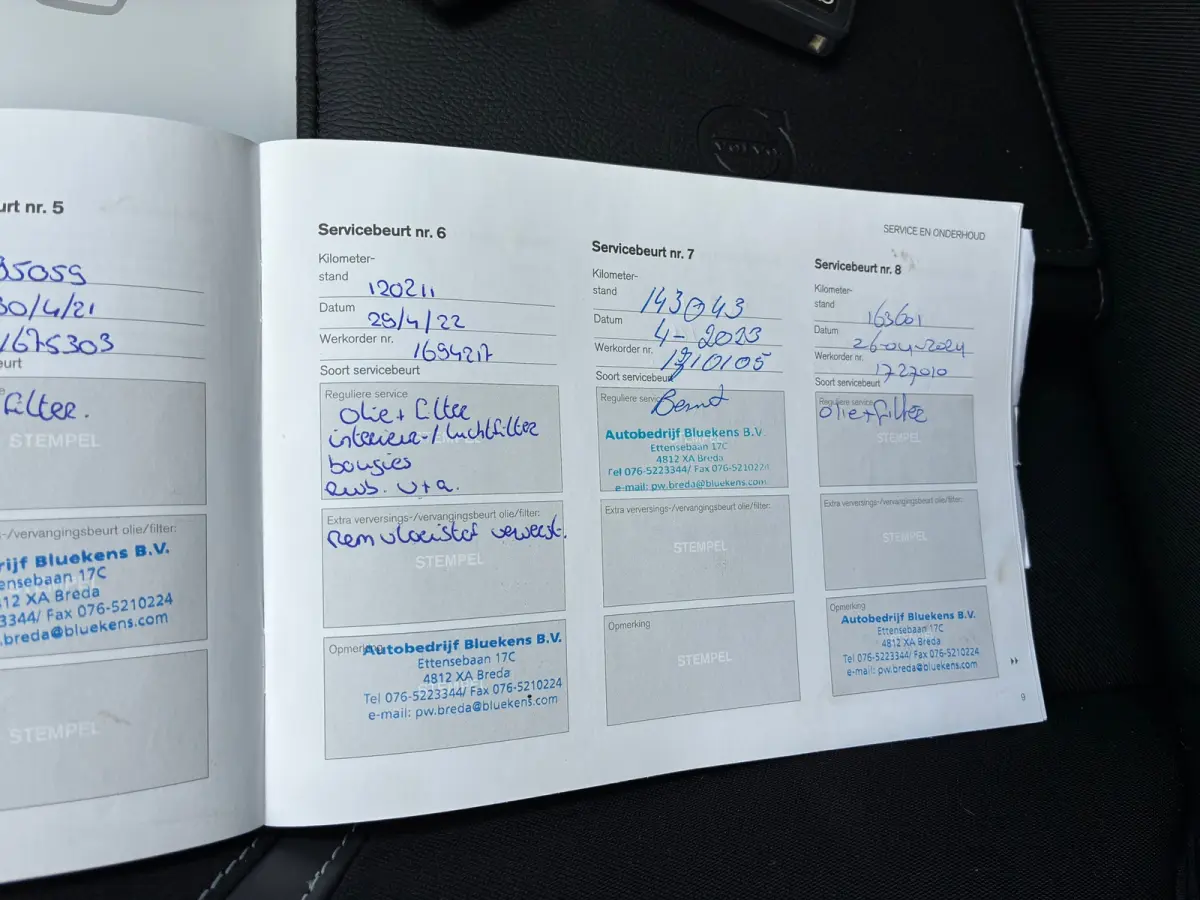 VOLVO
urt nr. 5
95059
30/4/21
1675303
eurt
filter.
STEMPEL
s-/vervangingsbeurt olie/filter:
rijf Bluekens B.V.
ensebaan 17C
12 XA Breda
3344/ Fax 076-5210224
.breda@bluekens.com
STEMPEL
SERVICE EN ONDERHOUD
Servicebeurt nr. 6
Kilometer-
stand 120211
Datum 29/4/22
Werkorder nr. 1694217
Soort servicebeurt
Reguliere service
Olie + filter
interieur-/luchtfilter
bougies
Rub. v+a.
Extra verversings-/vervangingsbeurt olie/filter:
Remvloeistof ververst.
STEMPEL
Opmerking
Autobedrijf Bluekens B.V.
Ettensebaan 17C
4812 XA Breda
Tel 076-5223344/ Fax 076-5210224
e-mail: pw.breda@bluekens.com
Servicebeurt nr. 7
Kilometer-
stand 143043
Datum 4-2023
Werkorder nr. 1710105
Soort servicebeurt
Reguliere service
Autobedrijf Bluekens B.V.
Ettensebaan 17C
4812 XA Breda
Tel 076-5223344/ Fax 076-5210224
e-mail: pw.breda@bluekens.com
Extra verversings-/vervangingsbeurt olie/filter:
STEMPEL
Opmerking
STEMPEL
Servicebeurt nr. 8
Kilometer-
stand 163601
Datum 26-04-2024
Werkorder nr. 1727010
Soort servicebeurt
Reguliere service
olie+filter
STEMPEL
Extra verversings-/vervangingsbeurt olie/filter:
STEMPEL
Opmerking
Autobedrijf Bluekens B.V.
Ettensebaan 17C
4812 XA Breda
Tel 076-5223344/ Fax 076-5210224
e-mail: pw.breda@bluekens.com
9